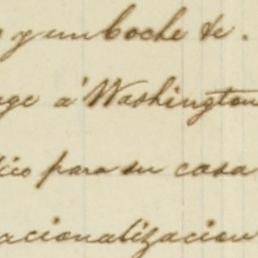 y un boche de.
age á Washington
ico para su casa
acionalizacion